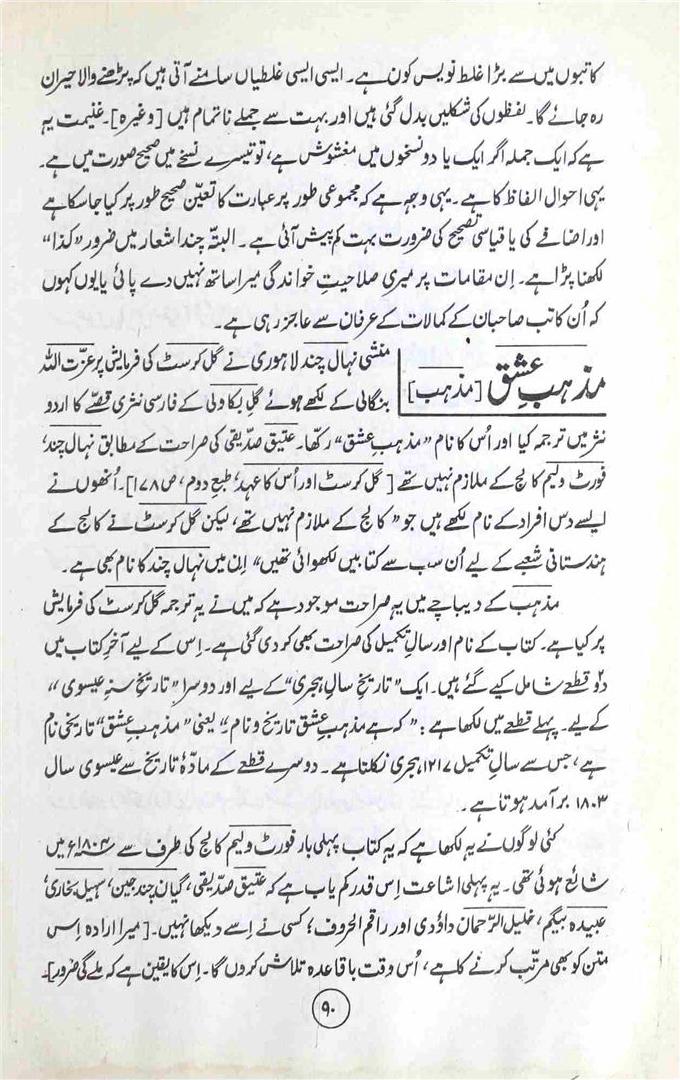 کاتبوں میں سے بڑا غلط نویس کون ہے۔ ایسی ایسی غلطیاں سامنے آتی ہیں کہ پڑھنے والا حیران
رہ جائے گا۔ لفظوں کی شکلیں بدل گئی ہیں اور بہت سے جملے ناتمام ہیں [وغیرہ]۔ غنیمت یہ
ہے کہ ایک جملہ اگر ایک یا دو نسخوں میں مغشوش ہے، تو تیسرے نسخے میں صحیح صورت میں ہے۔
یہی احوال الفاظ کا ہے۔ یہی وجہ ہے کہ مجموعی طور پر عبارت کا تعیّن صحیح طور پر کیا جا سکا ہے
اور اضافے کی یا قیاسی تصحیح کی ضرورت بہت کم پیش آئی ہے۔ البتّہ چند اشعار میں ضرور ”کذا“
لکھنا پڑا ہے۔ اِن مقامات پر میری صلاحیتِ خواندگی میرا ساتھ نہیں دے پائی یا یوں کہوں
کہ اُن کاتب صاحبان کے کمالات کے عرفان سے عاجز رہی ہے۔
مذہبِ عشق [مذہب] منشی نہال چند لاہوری نے گل کرسٹ کی فرمایش پر عزّت اللہ
بنگالی کے لکھے ہوئے گلِ بکاولی کے فارسی نثری قصّے کا اردو
نثر میں ترجمہ کیا اور اُس کا نام ”مذہبِ عشق“ رکھا۔ عتیق صدّیقی کی صراحت کے مطابق نہال چند،
فورٹ ولیم کالج کے ملازم نہیں تھے [گل کرسٹ اور اُس کا عہد، طبع دوم، ص ۱۷۸]۔ اُنھوں نے
ایسے دس افراد کے نام لکھے ہیں جو ”کالج کے ملازم نہیں تھے، لیکن گل کرسٹ نے کالج کے
ہندستانی شعبے کے لیے اُن سب سے کتابیں لکھوائی تھیں“ اِن میں نہال چند کا نام بھی ہے۔
مذہب کے دیباچے میں یہ صراحت موجود ہے کہ میں نے یہ ترجمہ گل کرسٹ کی فرمایش
پر کیا ہے۔ کتاب کے نام اور سالِ تکمیل کی صراحت بھی کر دی گئی ہے۔ اِس کے لیے آخرِ کتاب میں
دو قطعے شامل کیے گئے ہیں۔ ایک ”تاریخِ سالِ ہجری“ کے لیے اور دوسرا ”تاریخِ سنۂ عیسوی“
کے لیے۔ پہلے قطعے میں لکھا ہے: ”کہ ہے مذہبِ عشق تاریخ و نام“۔ یعنی ”مذہبِ عشق“ تاریخی نام
ہے، جس سے سالِ تکمیل ۱۲۱۷ ہجری نکلتا ہے۔ دوسرے قطعے کے مادّۂ تاریخ سے عیسوی سال
۱۸۰۳ برآمد ہوتا ہے۔
کئی لوگوں نے یہ لکھا ہے کہ یہ کتاب پہلی بار فورٹ ولیم کالج کی طرف سے ۱۸۰۴ء میں
شائع ہوئی تھی۔ یہ پہلی اشاعت اِس قدر کم یاب ہے کہ عتیق صدّیقی، گیان چند جین، سہیل بخاری،
عبیدہ بیگم، خلیل الرّحمان داؤدی اور راقم الحروف؛ کسی نے اِسے دیکھا نہیں۔ [میرا ارادہ اِس
متن کو بھی مرتّب کرنے کا ہے، اُس وقت باقاعدہ تلاش کروں گا۔ اِس کا یقین ہے کہ ملے گی ضرور]۔
۹۰